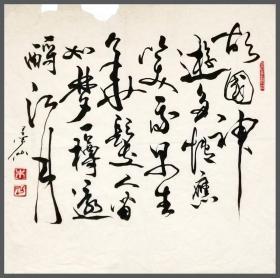 故國神
遊多情應
笑我早生
華髮人間
如夢一樽還
酹江月